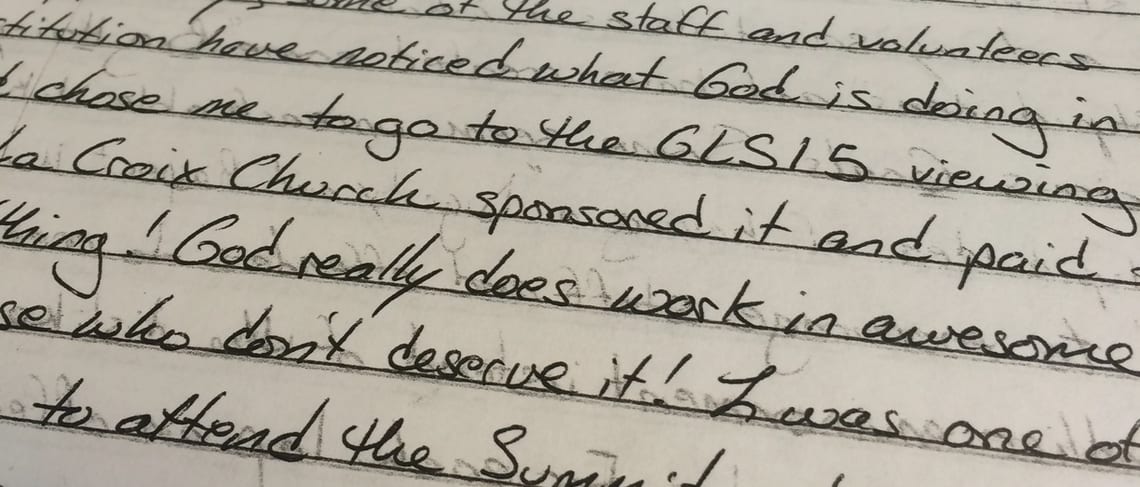 some of the staff and volunteers
titution have noticed what God is doing in
chose me to go to the GLS15 viewing
La Croix Church sponsored it and paid
thing! God really does work in awesome
se who don't deserve it! I was one of
to attend the Summit